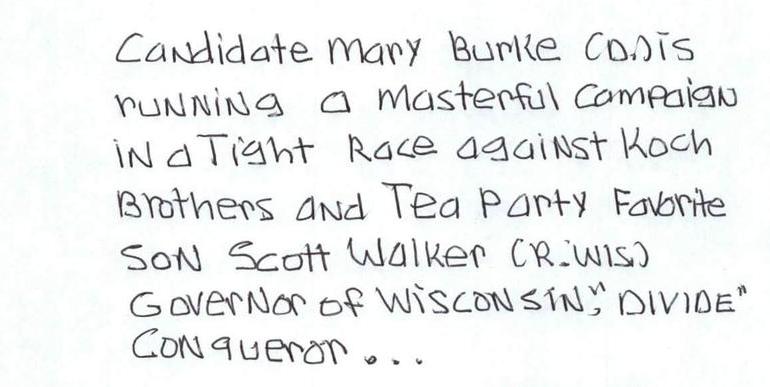 Candidate Mary Burke (D) is
running a masterful campaign
in a Tight Race against Koch
Brothers and Tea Party Favorite
Son Scott Walker (R.Wis)
Governor of Wisconsin, "DIVIDE"
Conqueror...